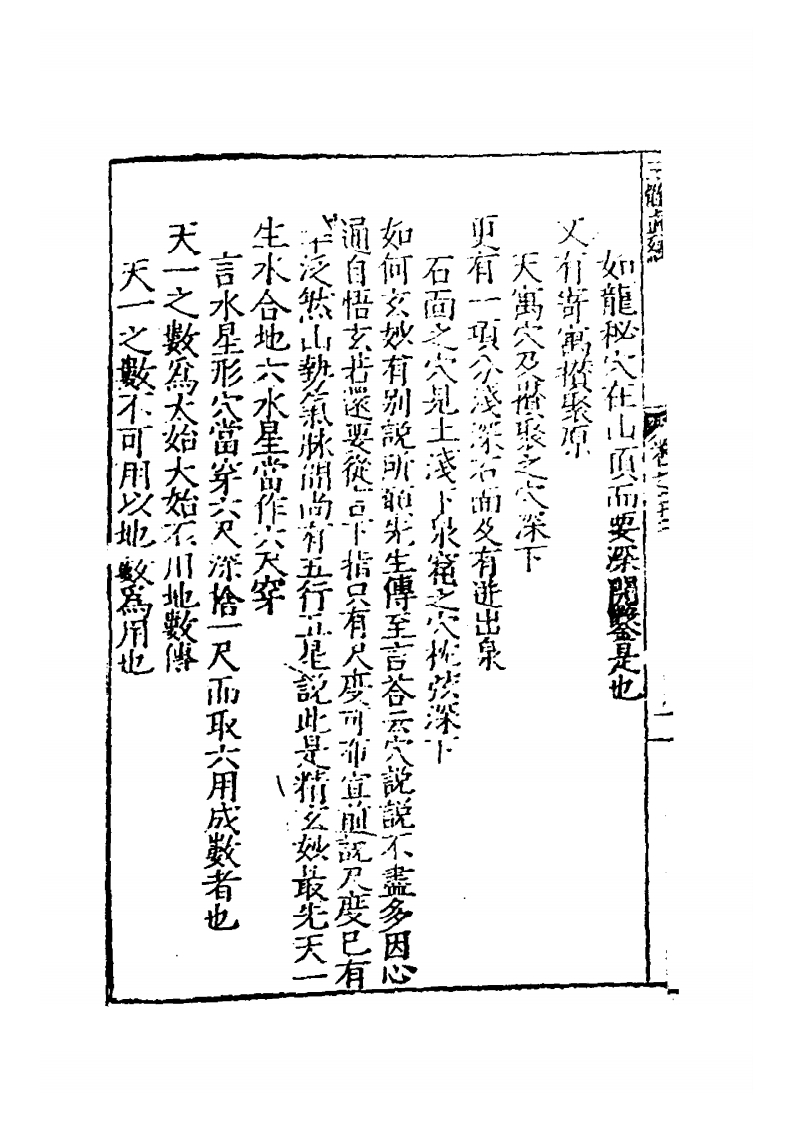 如龍秘穴在山頂而要深開鑿是也
又有寄寓攅聚原
天寓穴及攅聚之穴深下
更有一項分淺深石面及有迸出泉
石面之穴見土淺下泉窟之穴枕弦深下
如何玄妙有別說所願先生傳至言答云穴說說不盡多因心
通自悟玄若還要從言下指只有尺度可布宣前說尺度已有
泛然山執氣脉間尚有五行五星說此是精玄妙最先天一
生水合地六水星當作六尺穿
言水星形穴當穿六尺深捨一尺而取六用成數者也
天一之數爲太始太始不用地數傳
天一之數不可用以地數爲用也